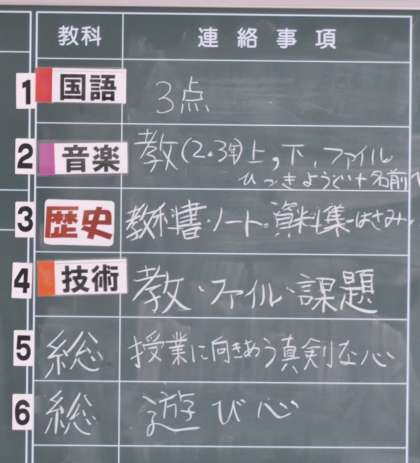 教科 連絡事項
1 国語 3点
2 音楽 教(2.3年)上,下,ファイル
ひっきようど+名前
3 歴史 教科書・ノート・資料集・はさみ
4 技術 教・ファイル・課題
5 総 授業に向きあう真剣な心
6 総 遊び心